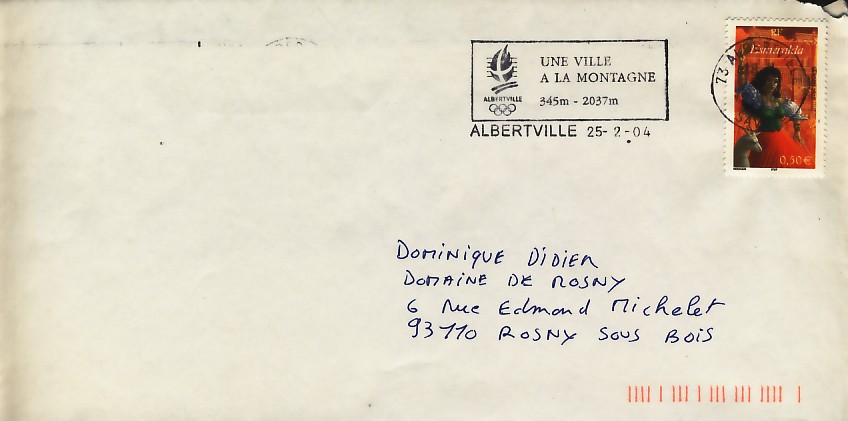 UNE VILLE
A LA MONTAGNE
345m - 2037m
ALBERTVILLE
ALBERTVILLE 25-2-04
RF
Esmeralda
73 A
0,50€
DOMINIQUE DIDIER
DOMAINE DE ROSNY
6 Rue Edmond Michelet
93110 ROSNY SOUS BOIS